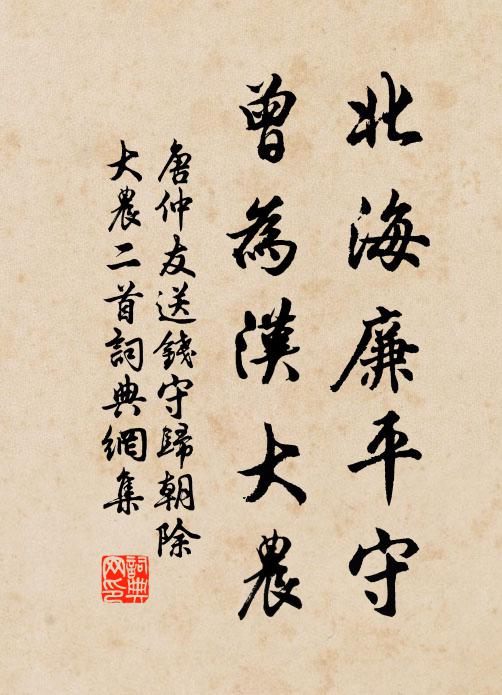 北海廉平守
曾為漢大農
唐仲友送錢守歸朝除
大農二首詞典網集
詞典
网印